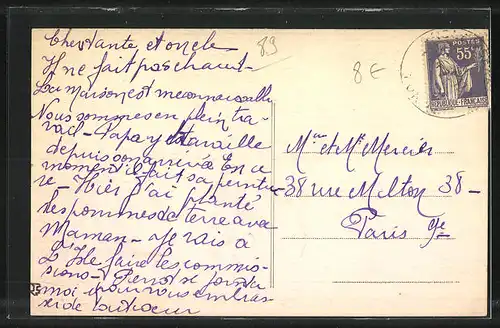 Cher Tante et oncle
Il ne fait pas chaud -
La maison est méconnaissable
Nous sommes en plein tra-
vail - Papa y travaille
depuis son arrivée En ce
moment il fait sa peintu-
re - Hier j'ai planté
des pommes de terre avec
Maman - je vais à
L'Isle faire les commis-
sions - se joindre
moi pour vous embras-
ser
89
8€
POSTES
55c
REPUBLIQUE FRANÇAISE
Mr et Me Mercier
38 rue Milton 38 -
Paris 9e